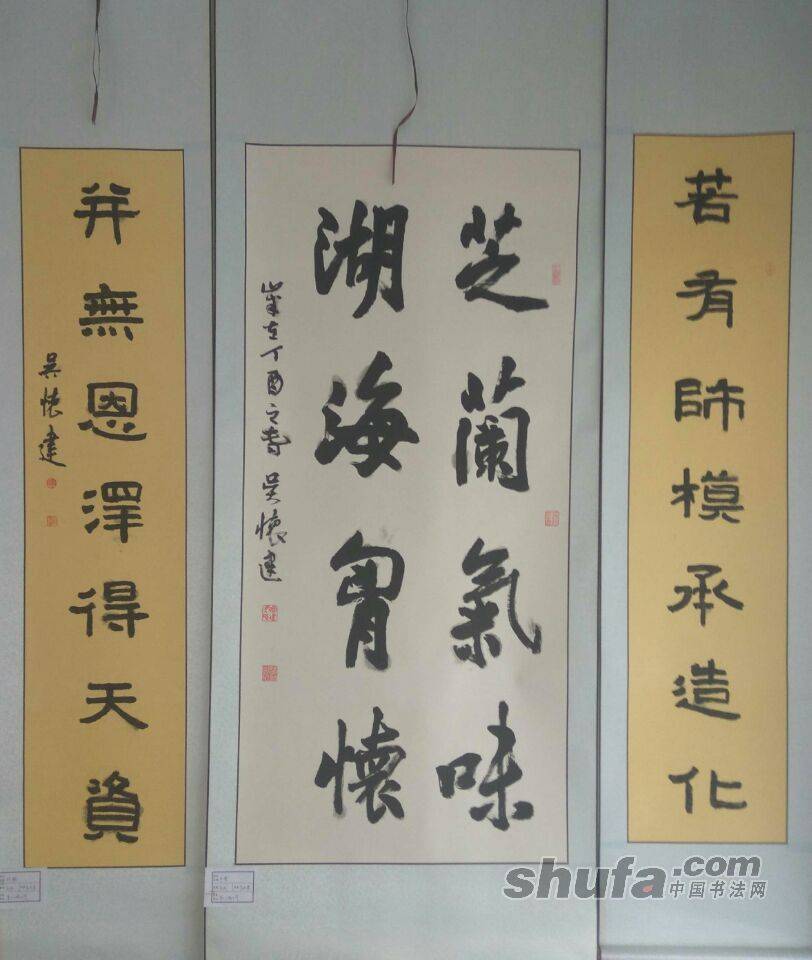 若有師模承造化
芝蘭氣味
湖海胷懷
歲在丁酉之春 吳懷建
并無恩澤得天資
吳懷建
shufa.com
中国书法网